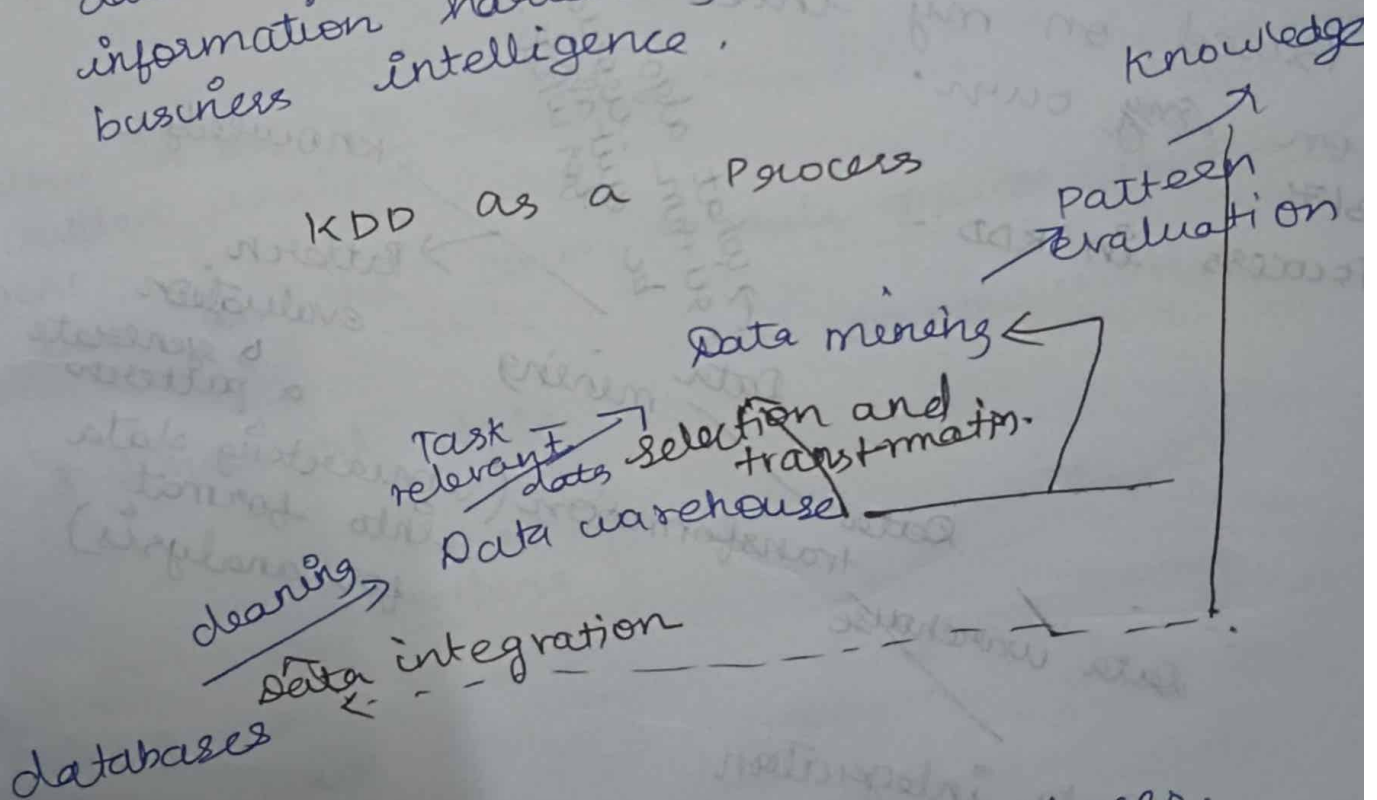 information
business intelligence.
KDD as a Process
Knowledge
Pattern
evaluation
Data mining
Task
relevant
data
selection and
transfrmatn.
Data warehouse
cleaning
Data integration
databases